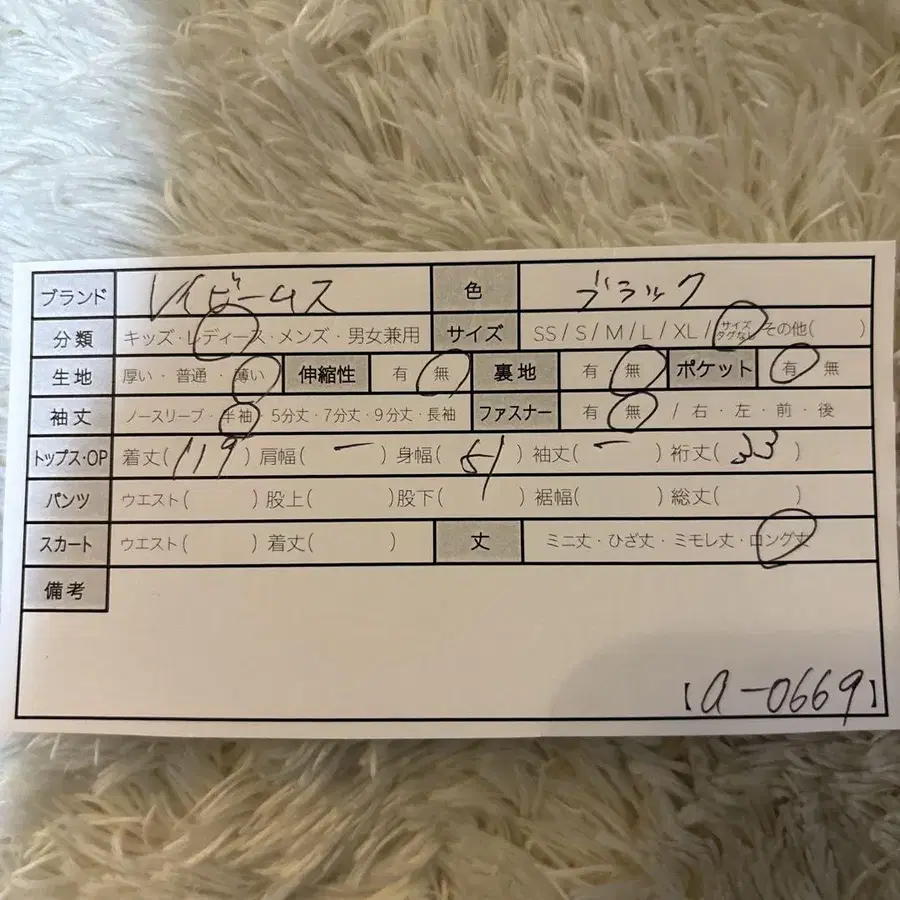 ブランド レイビームス 色 ブラック
分類 キッズ・レディース・メンズ・男女兼用 サイズ SS / S / M / L / XL / サイズタグなし その他( )
生地 厚い・普通・薄い 伸縮性 有・無 裏地 有・無 ポケット 有・無
袖丈 ノースリーブ・半袖・5分丈・7分丈・9分丈・長袖 ファスナー 有・無 / 右・左・前・後
トップス・OP 着丈(119) 肩幅(ー) 身幅(51) 袖丈(ー) 裄丈(33)
パンツ ウエスト( ) 股上( ) 股下( ) 裾幅( ) 総丈( )
スカート ウエスト( ) 着丈( ) 丈 ミニ丈・ひざ丈・ミモレ丈・ロング丈
備考
【a-0669】